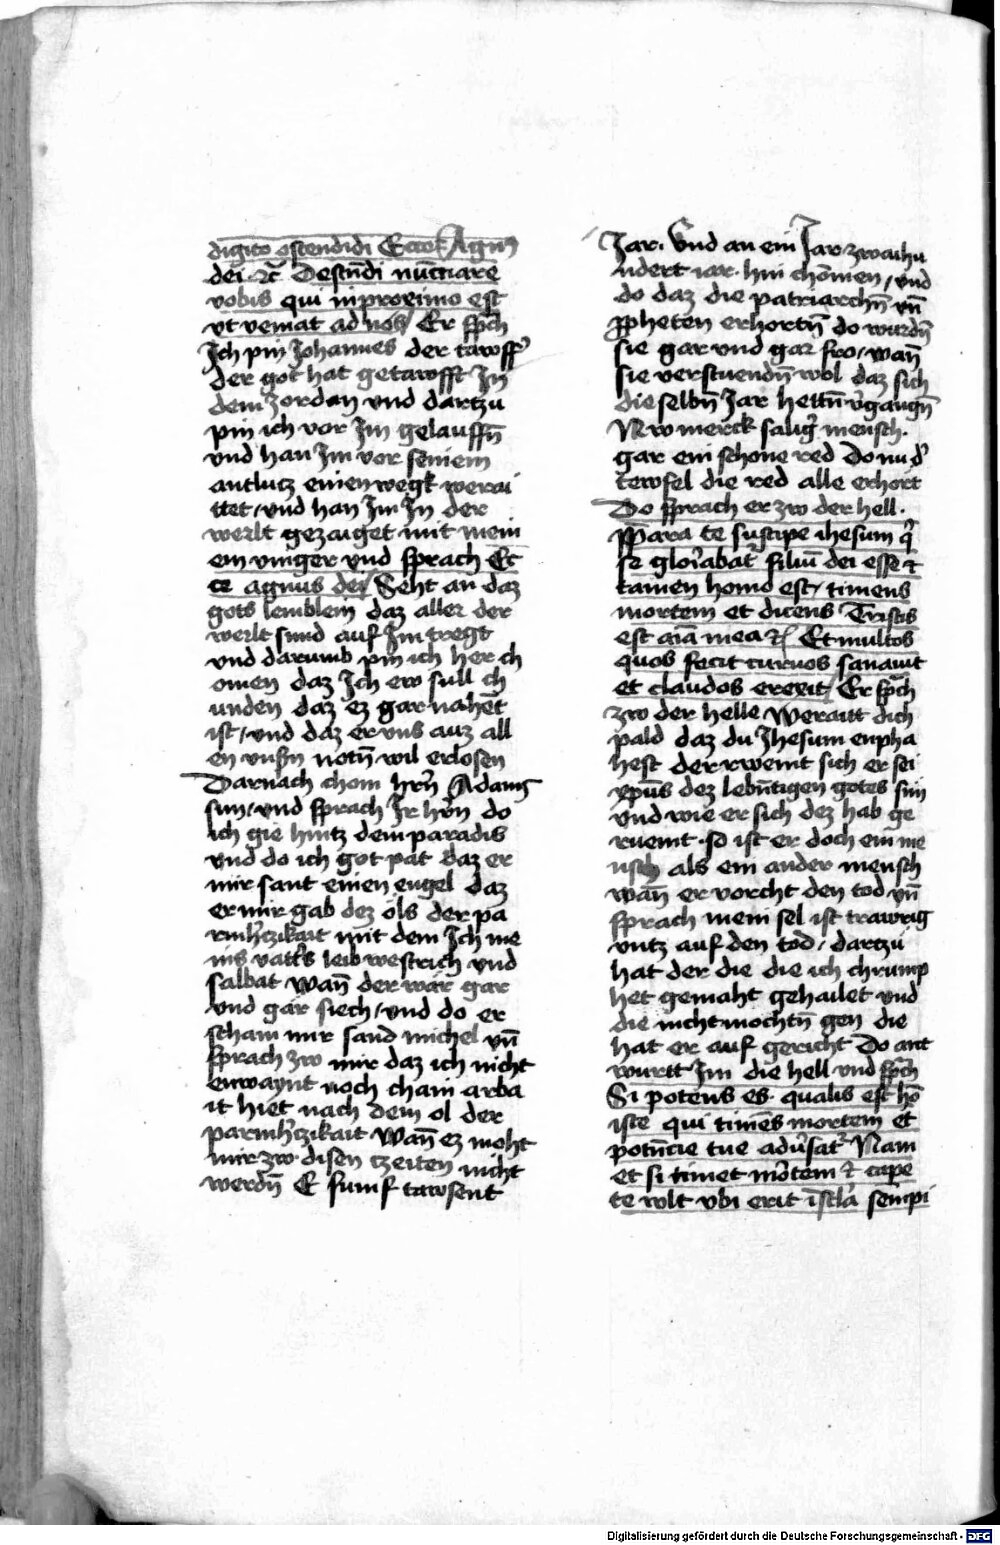 digito ostendidi Ecce Agnus
dei ⁊c̄ Descn̄di nūctiare
vobis qui in proximo est
vt veniat ad nos / Er sp̄ch
Ich pin Johannes der tawff
der got hat getawfft In
dem Jordan vnd dartzu
pin ich vor Im gelauffn̄
vnd han Im vor seniem
antlutz einen wegk werai
ttet / vnd han Im In der
werlt gezaiget mit mein
em vinger vnd sprach Ec
ce agnus dei / Seht an daz
gots lemblein daz aller der
werlt sund auf Im tregt
vnd darumb pin ich her ch
omen daz Ich ew sull ch
unden daz ez gar nahet
ist / vnd daz er vns auz all
en vnsn̄ notn̄ wil erlosen
Darnach chom hrn̄ Adams
sun / vnd sprach Ir hrn̄ do
ich gie hintz dem paradis
vnd do ich got pat daz er
mir sant einen engel daz
er mir gab dez öls der pa
rmh'tzikait mit dem Ich me
ins vatt's leib westrich vnd
salbat wan̄ der war gar
vnd gar siech / vnd do er
scham mir sand michel vn̄
sprach zw mir daz ich nicht
enwaynt noch cham arba
it hiet nach dem ol der
parmh'tzikait wan̄ ez moht
mir zw disen tzeiten nicht
werdn̄ E fumf tawsent
Jar . Vnd an ein Jar zwaihu
ndert iar . hin chömen / vnd
do daz die patriarchn̄ vn̄
ꝓpheten erhortn̄ do wurdn̄
sie gar vnd gar fro / wan̄
sie verstuendn̄ wol daz sich
die selbn̄ Jar hettn̄ v'gangn̄
Nw merck salig' mensch .
gar ein schone red Do nu d'
tewfel die red alle erhort
Do sprach er zw der hell .
Para te suscipe ihesum q'
se glor'abat' filiū dei esse ⁊
tamen homo est / timens
mortem et dicens Tristis
est aīa mea ⁊c̄ Et multos
quos fecit curuos sanauit
et claudos erexit / Er sp̄ch
zw der helle Weraitt dich
pald daz du Jhesum enpha
hest der rwemt sich er sei
xpūs dez lebn̄tigen gotes sun
vnd wie er sich dez hab ge
ruemt . so ist er doch ein me
nsch als ein ander mensch
wan̄ er vorcht den tod vn̄
sprach mein sel ist trawrig
vntz auf den tod / dartzu
hat der die die ich chrump
het gemaht gehailet vnd
die nicht mochtn̄ gen die
hat er auf gericht Do ant
wurtt Im die hell vnd sp̄ch
Si potens es . qualis est hō
iste qui timēs mortem et
potn̄cie tue adu'sat' Nam
et si timet mōtem ⁊ cape
te wlt vbi erit ī scl'a sempi